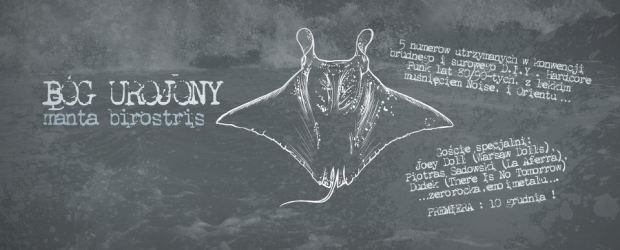 BÓG UROJONY
manta birostris
5 numerów utrzymanych w konwencji
brudnego i surowego D.I.Y. Hardcore
Punk lat 80/90-tych, z lekkim
muśnięciem Noise, i Orientu ...
Goście specjalni:
Joey Doll (Warsaw Dolls),
Piotras Sadowski (La Aferra),
Dudek (There Is No Tomorrow)
...zero rocka, emo i metalu...
PREMIERA : 10 grudnia !